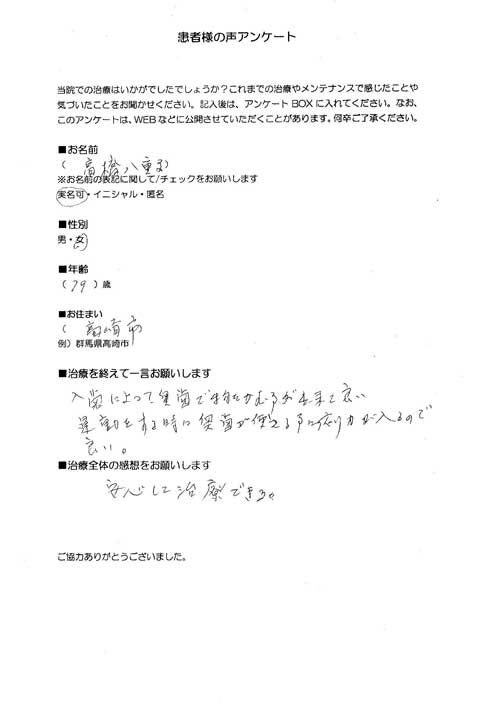 患者様の声アンケート
当院での治療はいかがでしたでしょうか?これまでの治療やメンテナンスで感じたことや
気づいたことをお聞かせください。記入後は、アンケート BOX に入れてください。なお、
このアンケートは、WEBなどに公開させていただくことがあります。何卒ご了承ください。
■お名前
( 高橋八重子)
※お名前の表記に関して/チェックをお願いします
実名可・イニシャル・匿名
■性別
男・女
■年齢
( 79 ) 歳
■お住まい
( 高崎市
例)群馬県高崎市
■治療を終えて一言お願いします
入歯によって奥歯で物をかむ事が出来て良い
運動をする時に奥歯が使える事に依り力が入るので
良い。
■治療全体の感想をお願いします
安心して治療できる。
ご協力ありがとうございました。